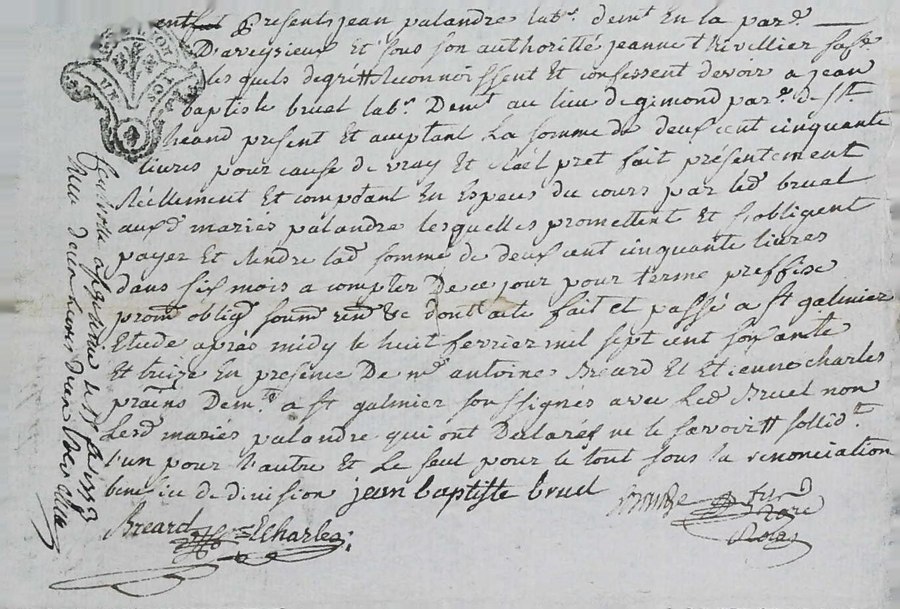 ent presents jean palandre labr. demt En la par.
Daveysieux Et sous son authoritté jeanne thivellier sa fe
lesquels de gré tt Reconnoissent Et confessent devoir a jean
baptiste bruel labr. Demt au lieu de gimond par. De St.
heand present Et aceptant La somme de deux cent cinquante
livres pour cause de vray Et Réel pret fait présentement
Réellement Et comptant En Especes du cours par led bruel
auxd mariés palandre lesquelles promettent Et sobligent
payer Et Rendre lad somme de deux cent cinquante livres
dans six mois a compter De ce jour pour terme preffixe
prom oblig soum ren &c dont acte fait et passé a st galmier
Etude après midy le huit fevrier mil sept cent soixante
Et treize En presence De mr antoine Breard Et Etienne charles
pratns Demts a st galmier soussignes avec Led Bruel non
Lesd mariés palandre qui ont Declarés ne le savoir tt sollidt.
l'un pour l'autre Et Le seul pour le tout sous la renonciation
benefice de division jean baptiste bruel
Breard E Charles
nore
Roial